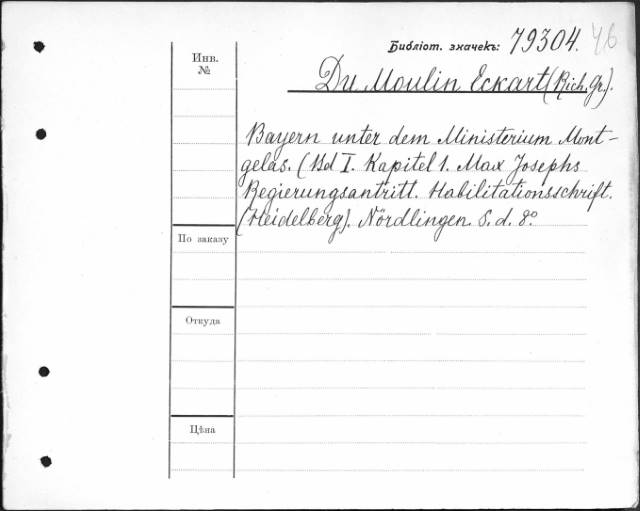 Библіот. значекъ: 79304. 46
Инв.
№
Du Moulin Eckart (Rich. Gr.).
Bayern unter dem Ministerium Mont-
gelas. (Bd I. Kapitel 1. Max Josephs
Regierungsantritt. Habilitationsschrift.
(Heidelberg). Nördlingen. S. d. 8º
По заказу
Откуда
Цѣна